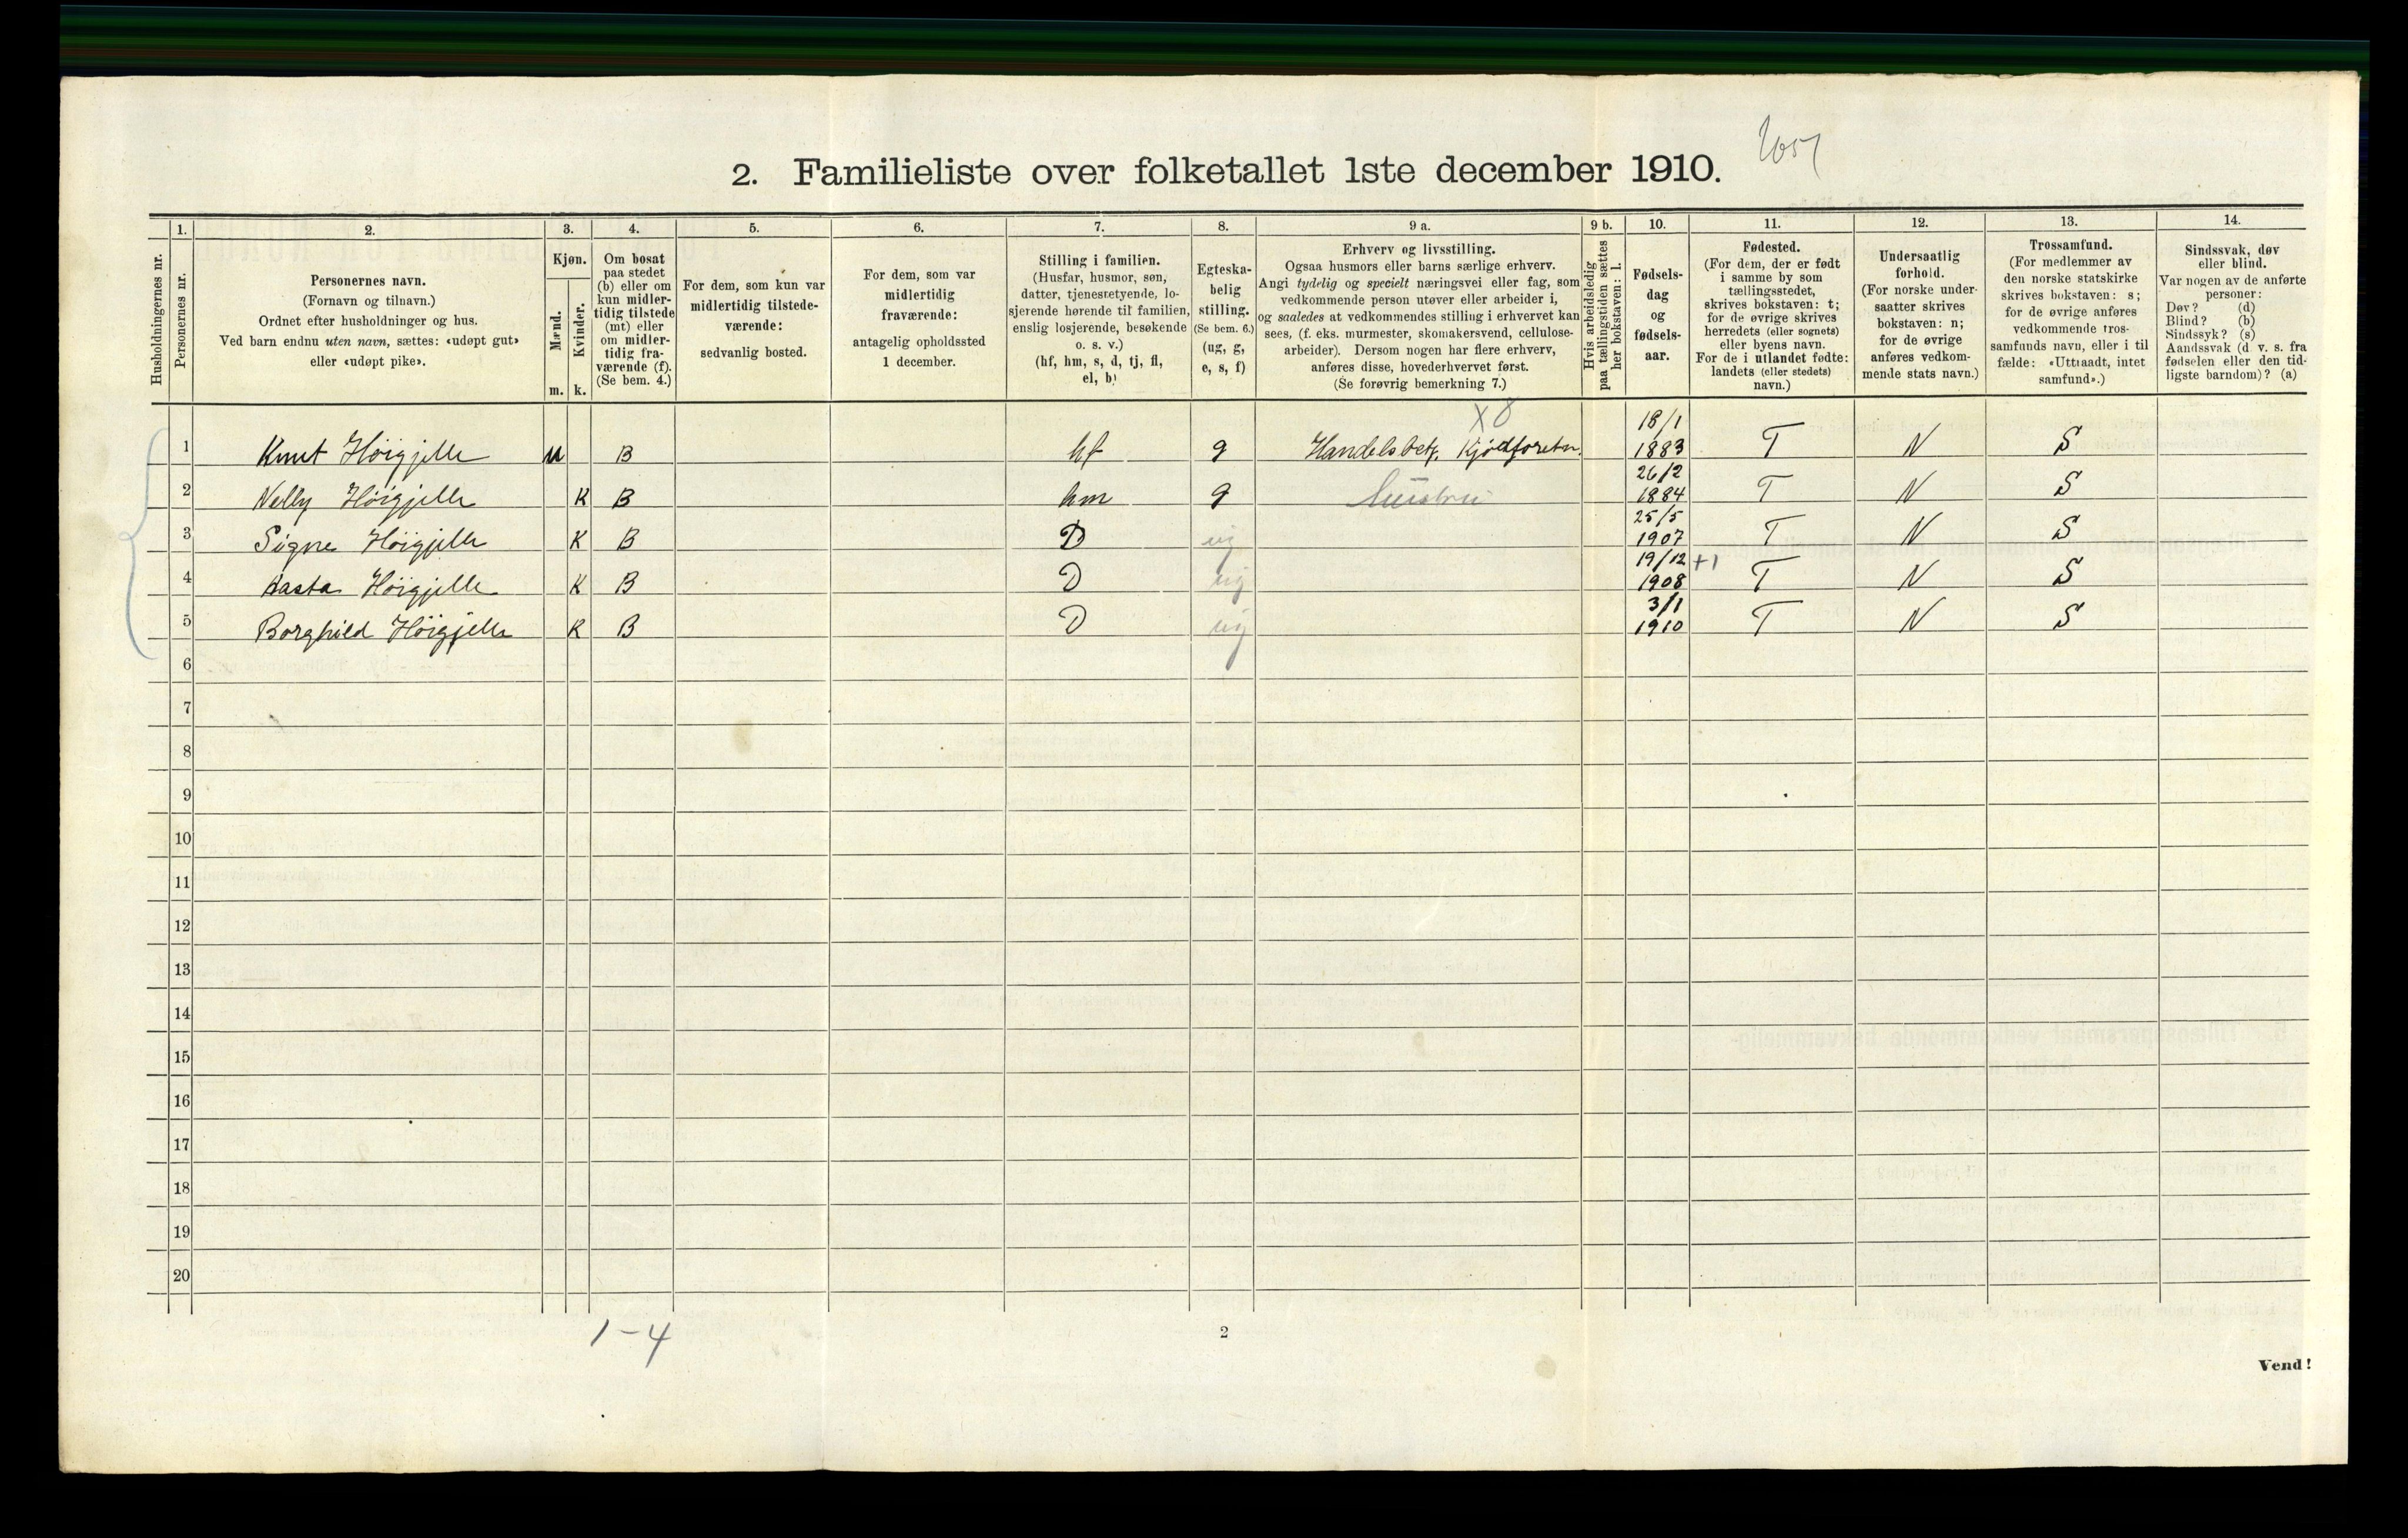 2. Familieliste over folketallet 1ste december 1910.
1. 2. 3. 4. 5. 6. 7. 8. 9 a. 9 b. 10. 11. 12. 13. 14.
Husholdningernes nr.
Personernes nr.
Personernes navn.
(Fornavn og tilnavn.)
Ordnet efter husholdninger og hus.
Ved barn endnu uten navn, sættes: «udøpt gut»
eller «udøpt pike».
Kjøn.
Mænd.
Kvinder.
m. k.
Om bosat
paa stedet
(b) eller om
kun midler-
tidig tilstede
(mt) eller
om midler-
tidig fra-
værende (f).
(Se bem. 4.)
For dem, som kun var
midlertidig tilstede-
værende:
sedvanlig bosted.
For dem, som var
midlertidig
fraværende:
antagelig opholdssted
1 december.
Stilling i familien.
(Husfar, husmor, søn,
datter, tjenestetyende, lo-
sjerende hørende til familien,
enslig losjerende, besøkende
o. s. v.)
(hf, hm, s, d, tj, fl,
el, b)
Egteska-
belig
stilling.
(Se bem. 6.)
(ug, g,
e, s, f)
Erhverv og livsstilling.
Ogsaa husmors eller barns særlige erhverv.
Angi tydelig og specielt næringsvei eller fag, som
vedkommende person utøver eller arbeider i,
og saaledes at vedkommendes stilling i erhvervet kan
sees, (f. eks. murmester, skomakersvend, cellulose-
arbeider). Dersom nogen har flere erhverv,
anføres disse, hovederhvervet først.
(Se forøvrig bemerkning 7.)
Hvis arbeidsledig
paa tællingstiden sættes
her bokstaven: l.
Fødsels-
dag
og
fødsels-
aar.
Fødested.
(For dem, der er født
i samme by som
tællingsstedet,
skrives bokstaven: t;
for de øvrige skrives
herredets (eller sognets)
eller byens navn.
For de i utlandet fødte:
landets (eller stedets)
navn.)
Undersaatlig
forhold.
(For norske under-
saatter skrives
bokstaven: n;
for de øvrige
anføres vedkom-
mende stats navn.)
Trossamfund.
(For medlemmer av
den norske statskirke
skrives bokstaven: s;
for de øvrige anføres
vedkommende tros-
samfunds navn, eller i til
fælde: «Uttraadt, intet
samfund».)
Sindssvak, døv
eller blind.
Var nogen av de anførte
personer:
Døv? (d)
Blind? (b)
Sindssyk? (s)
Aandssvak (d. v. s. fra
fødselen eller den tid-
ligste barndom)? (a)
X8
1 Knut Höigjelle M B hf g Handelsbetj. Kjödforetn. 18/1 1883 T N S
2 Nelly Höigjelle K B hm g hustru 26/2 1884 T N S
3 Signe Höigjelle K B D ug 25/5 1907 T N S
4 Aasta Höigjelle K B D ug 19/12 1908 +1 T N S
5 Borghild Höigjelle K B D ug 3/1 1910 T N S
6
7
8
9
10
11
12
13
14
15
16
17
18
19
20
1-4
2
Vend!